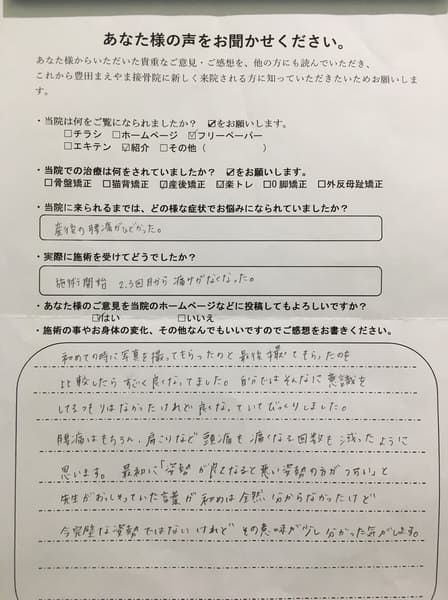 あなた様の声をお聞かせください。
あなた様からいただいた貴重なご意見・ご感想を、他の方にも読んでいただき、
これから豊田まえやま接骨院に新しく来院される方に知っていただきたいためお願いしま
す。
・当院は何をご覧になられましたか？ ☑をお願いします。
□チラシ □ホームページ ☑フリーペーパー
□エキテン ☑紹介 □その他（　　　　　　）
・当院での治療は何をされていますか？ ☑をお願いします。
□骨盤矯正 □猫背矯正 ☑産後矯正 ☑楽トレ □O脚矯正 □外反母趾矯正
・当院に来られるまでは、どの様な症状でお悩みになられていましたか？
産後の腰痛がひどかった。
・実際に施術を受けてどうでしたか？
施術開始 2.3回目から痛みがなくなった。
・あなた様のご意見を当院のホームページなどに投稿してもよろしいですか？
□はい □いいえ
・施術の事やお身体の変化、その他なんでもいいですのでご感想をお書きください。
初めての時に写真を撮ってもらったのと最後撮ってもらったのを
比較したらすごく良くなってました。自分ではそんなに意識を
してるつもりはなかったけれど良くなっていてびっくりしました。
腰痛はもちろん、肩こりなど頭痛も痛くなる回数も減ったように
思います。最初に「姿勢が良くなると悪い姿勢の方がつらい」と
先生がおっしゃっていた言葉が初めは全然分からなかったけど
今完璧な姿勢ではないけれどその意味が少し分かった気がします。